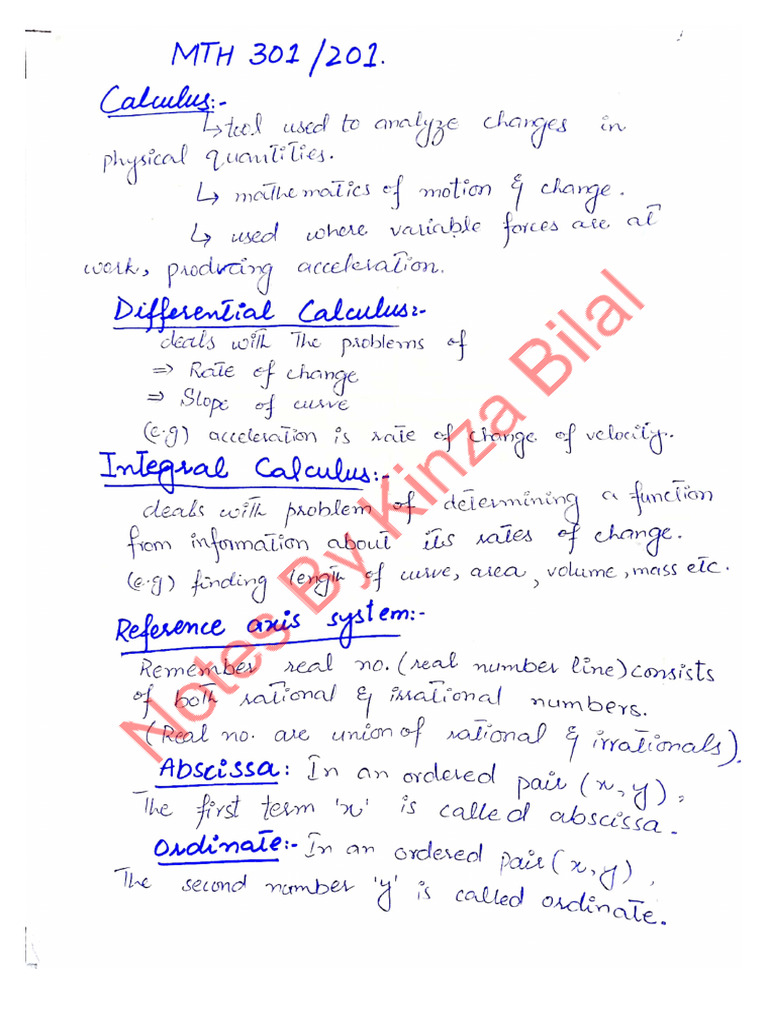 MTH 301/201.
Calculus:-
↳ tool used to analyze changes in
physical quantities.
↳ mathematics of motion & change.
↳ used where variable forces are at
work, producing acceleration.
Differential Calculus:-
deals with the problems of
⇒ Rate of change
⇒ Slope of curve
(e.g) acceleration is rate of change of velocity.
Integral Calculus:-
deals with problem of determining a function
from information about its rates of change.
(e.g) finding length of curve, area, volume, mass etc.
Reference axis system:-
Remember real no. (real number line) consists
of both rational & irrational numbers.
(Real no. are union of rational & irrationals).
Abscissa: In an ordered pair (x, y),
The first term 'x' is called abscissa.
Ordinate:- In an ordered pair (x, y),
The second number 'y' is called ordinate.
Notes By Kinza Bilal